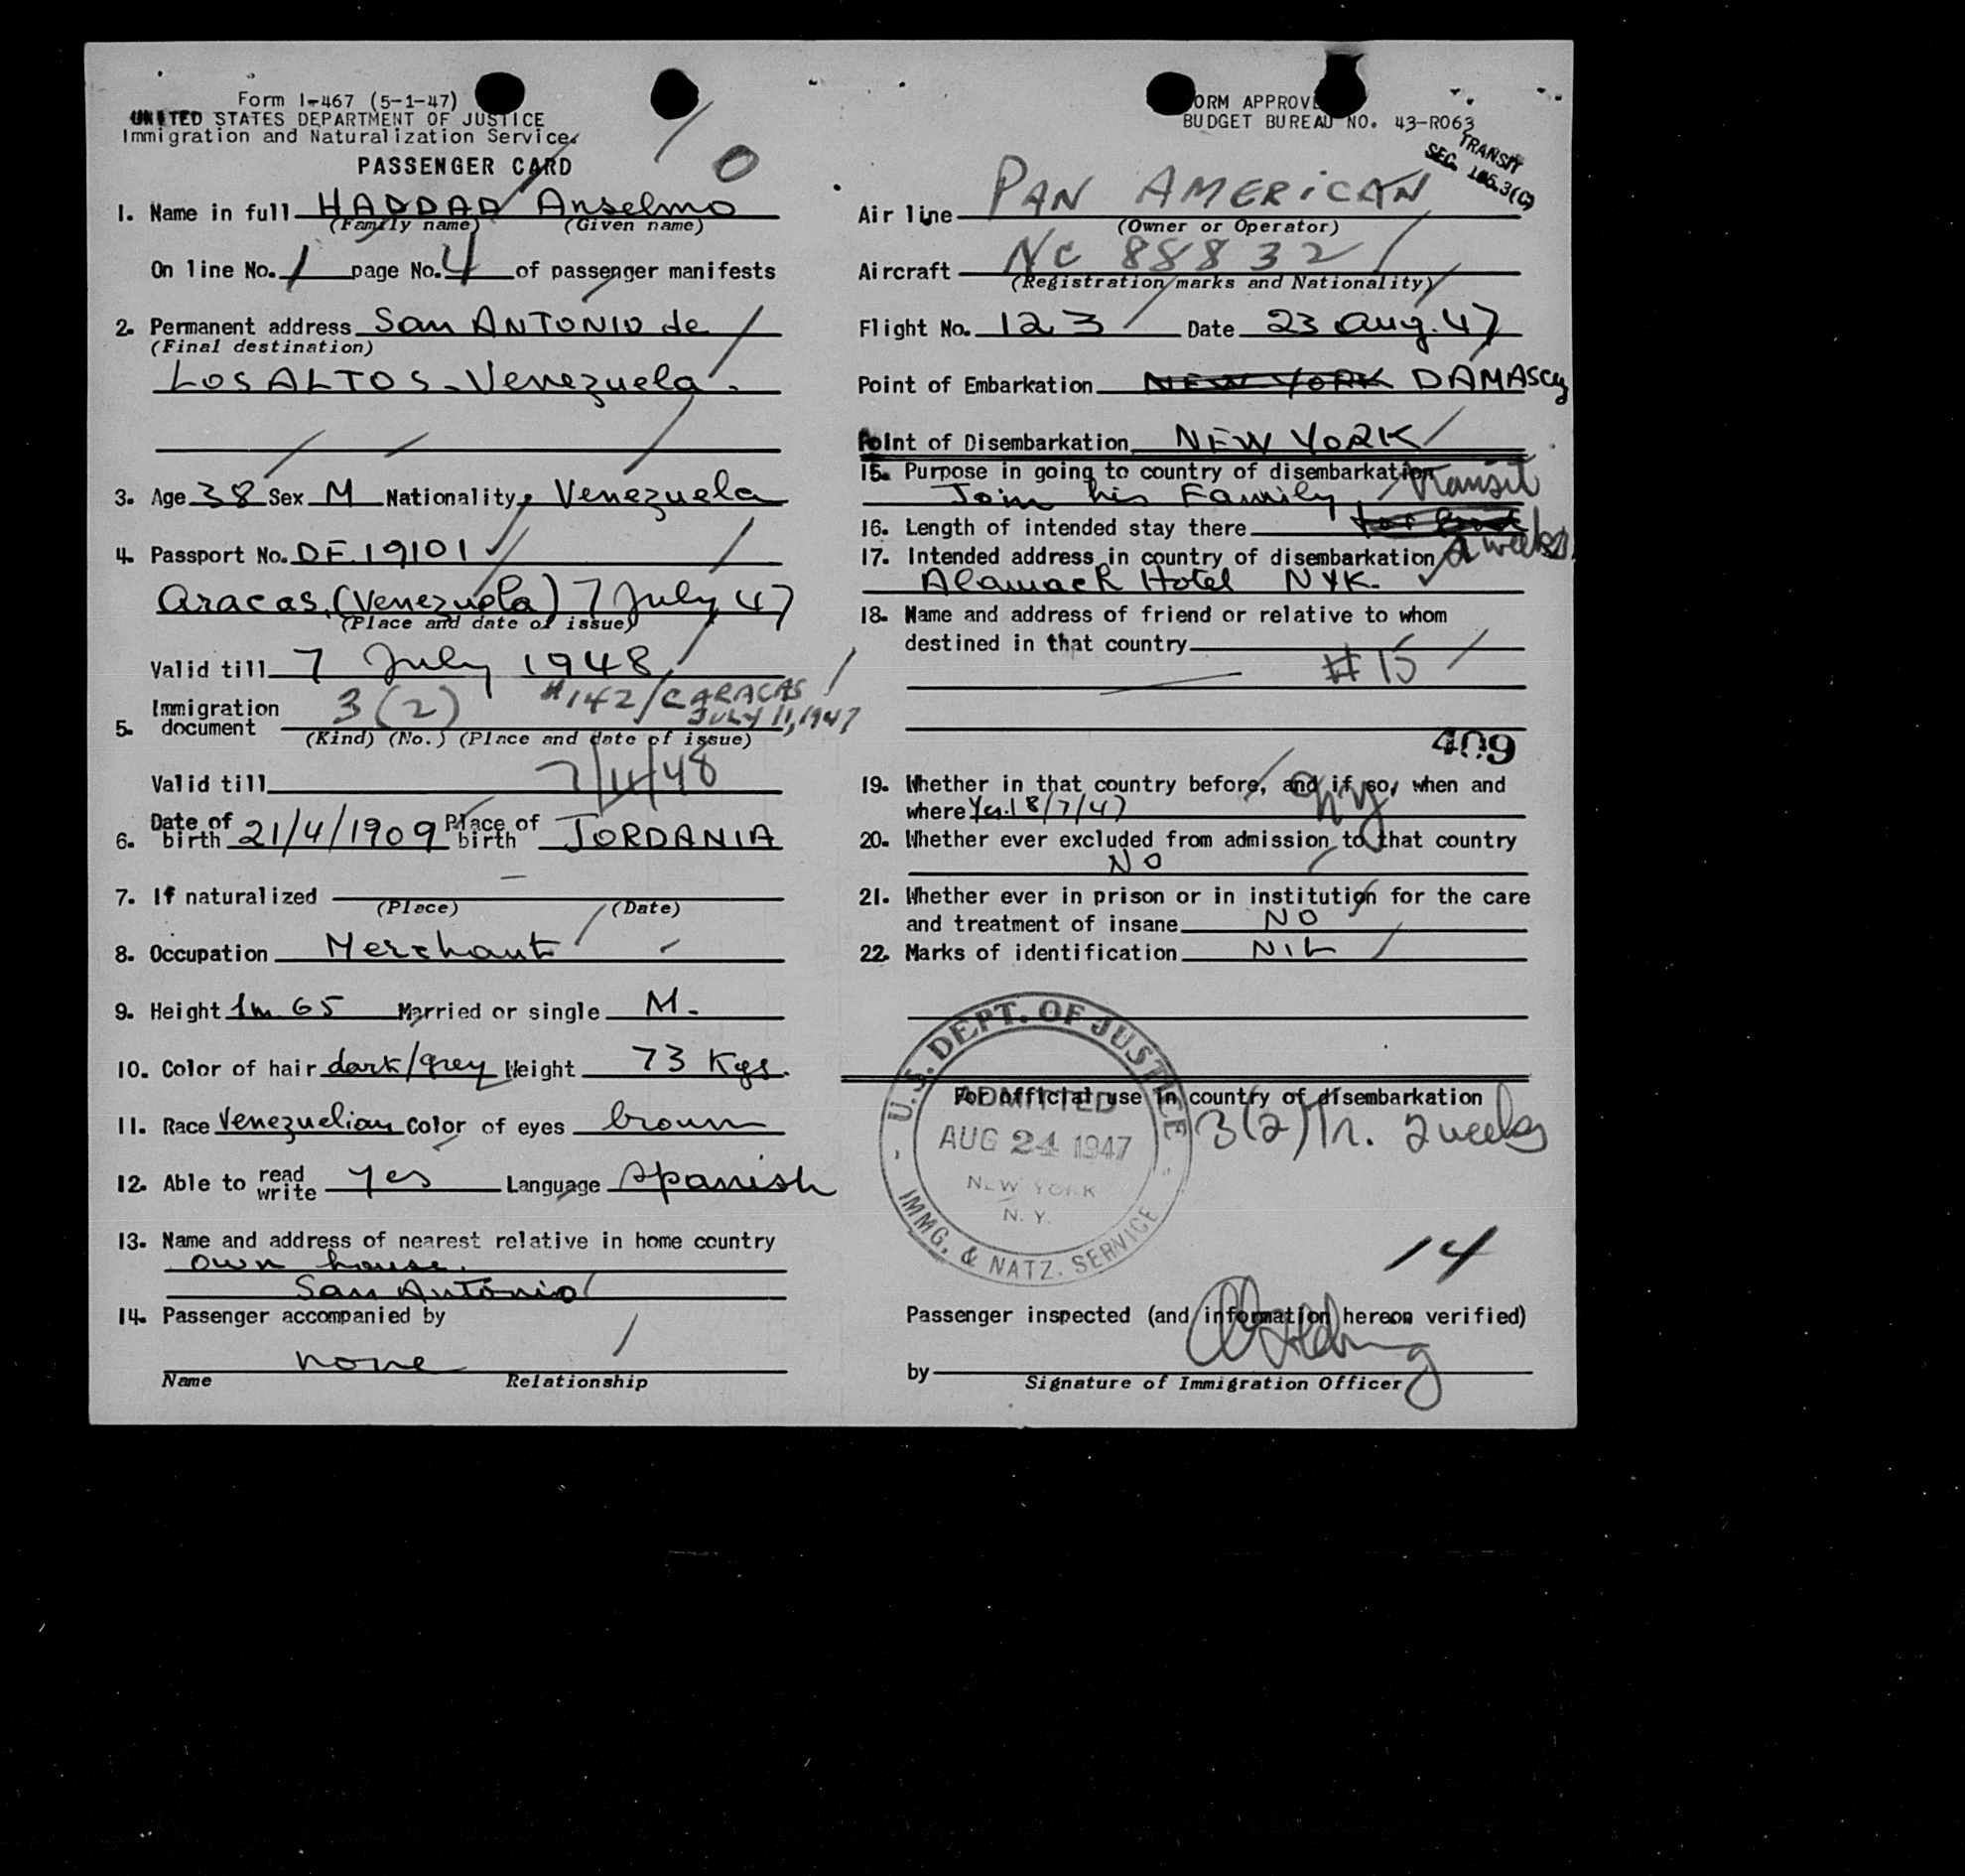 Form I-467 (5-1-47)
UNITED STATES DEPARTMENT OF JUSTICE
Immigration and Naturalization Service
PASSENGER CARD
1. Name in full HADDAD Anselmo
(Family name) (Given name)
On line No. 1 page No. 4 of passenger manifests
2. Permanent address San ANTONIO de
(Final destination)
LOS ALTOS - Venezuela.
3. Age 38 Sex M Nationality Venezuela
4. Passport No. DF. 19101
Caracas, (Venezuela) 7 July 47
(Place and date of issue)
Valid till 7 July 1948
5. Immigration document 3(2) #142/CARACAS JULY 11, 1947
(Kind) (No.) (Place and date of issue)
Valid till 7/11/48
6. Date of birth 21/4/1909 Place of birth JORDANIA
7. If naturalized —
(Place) (Date)
8. Occupation Merchant
9. Height 1m 65 Married or single M.
10. Color of hair dark/grey Weight 73 Kgs.
11. Race Venezuelian Color of eyes brown
12. Able to read write yes Language Spanish
13. Name and address of nearest relative in home country
own house.
San Antonio
14. Passenger accompanied by
none
Name Relationship
0
FORM APPROVED
BUDGET BUREAU NO. 43-R063
TRANSIT
SEC. 165.3(C)
Air line PAN AMERICAN
(Owner or Operator)
Aircraft NC 88832
(Registration marks and Nationality)
Flight No. 123 Date 23 Aug. 47
Point of Embarkation NEW YORK DAMASCUS
Point of Disembarkation NEW YORK
15. Purpose in going to country of disembarkation
Join his Family Transit
16. Length of intended stay there 2 weeks
17. Intended address in country of disembarkation
Alamack Hotel NYK.
18. Name and address of friend or relative to whom
destined in that country
#15
409
19. Whether in that country before, and if so, when and
where Yes. 18/7/47 NY
20. Whether ever excluded from admission to that country
NO
21. Whether ever in prison or in institution for the care
and treatment of insane NO
22. Marks of identification NIL
For official use in country of disembarkation
U.S. DEPT. OF JUSTICE
ADMITTED
AUG 24 1947
NEW YORK
N. Y.
IMMG. & NATZ. SERVICE
3(2) Tr. 2 weeks
14
Passenger inspected (and information hereon verified)
by
Signature of Immigration Officer